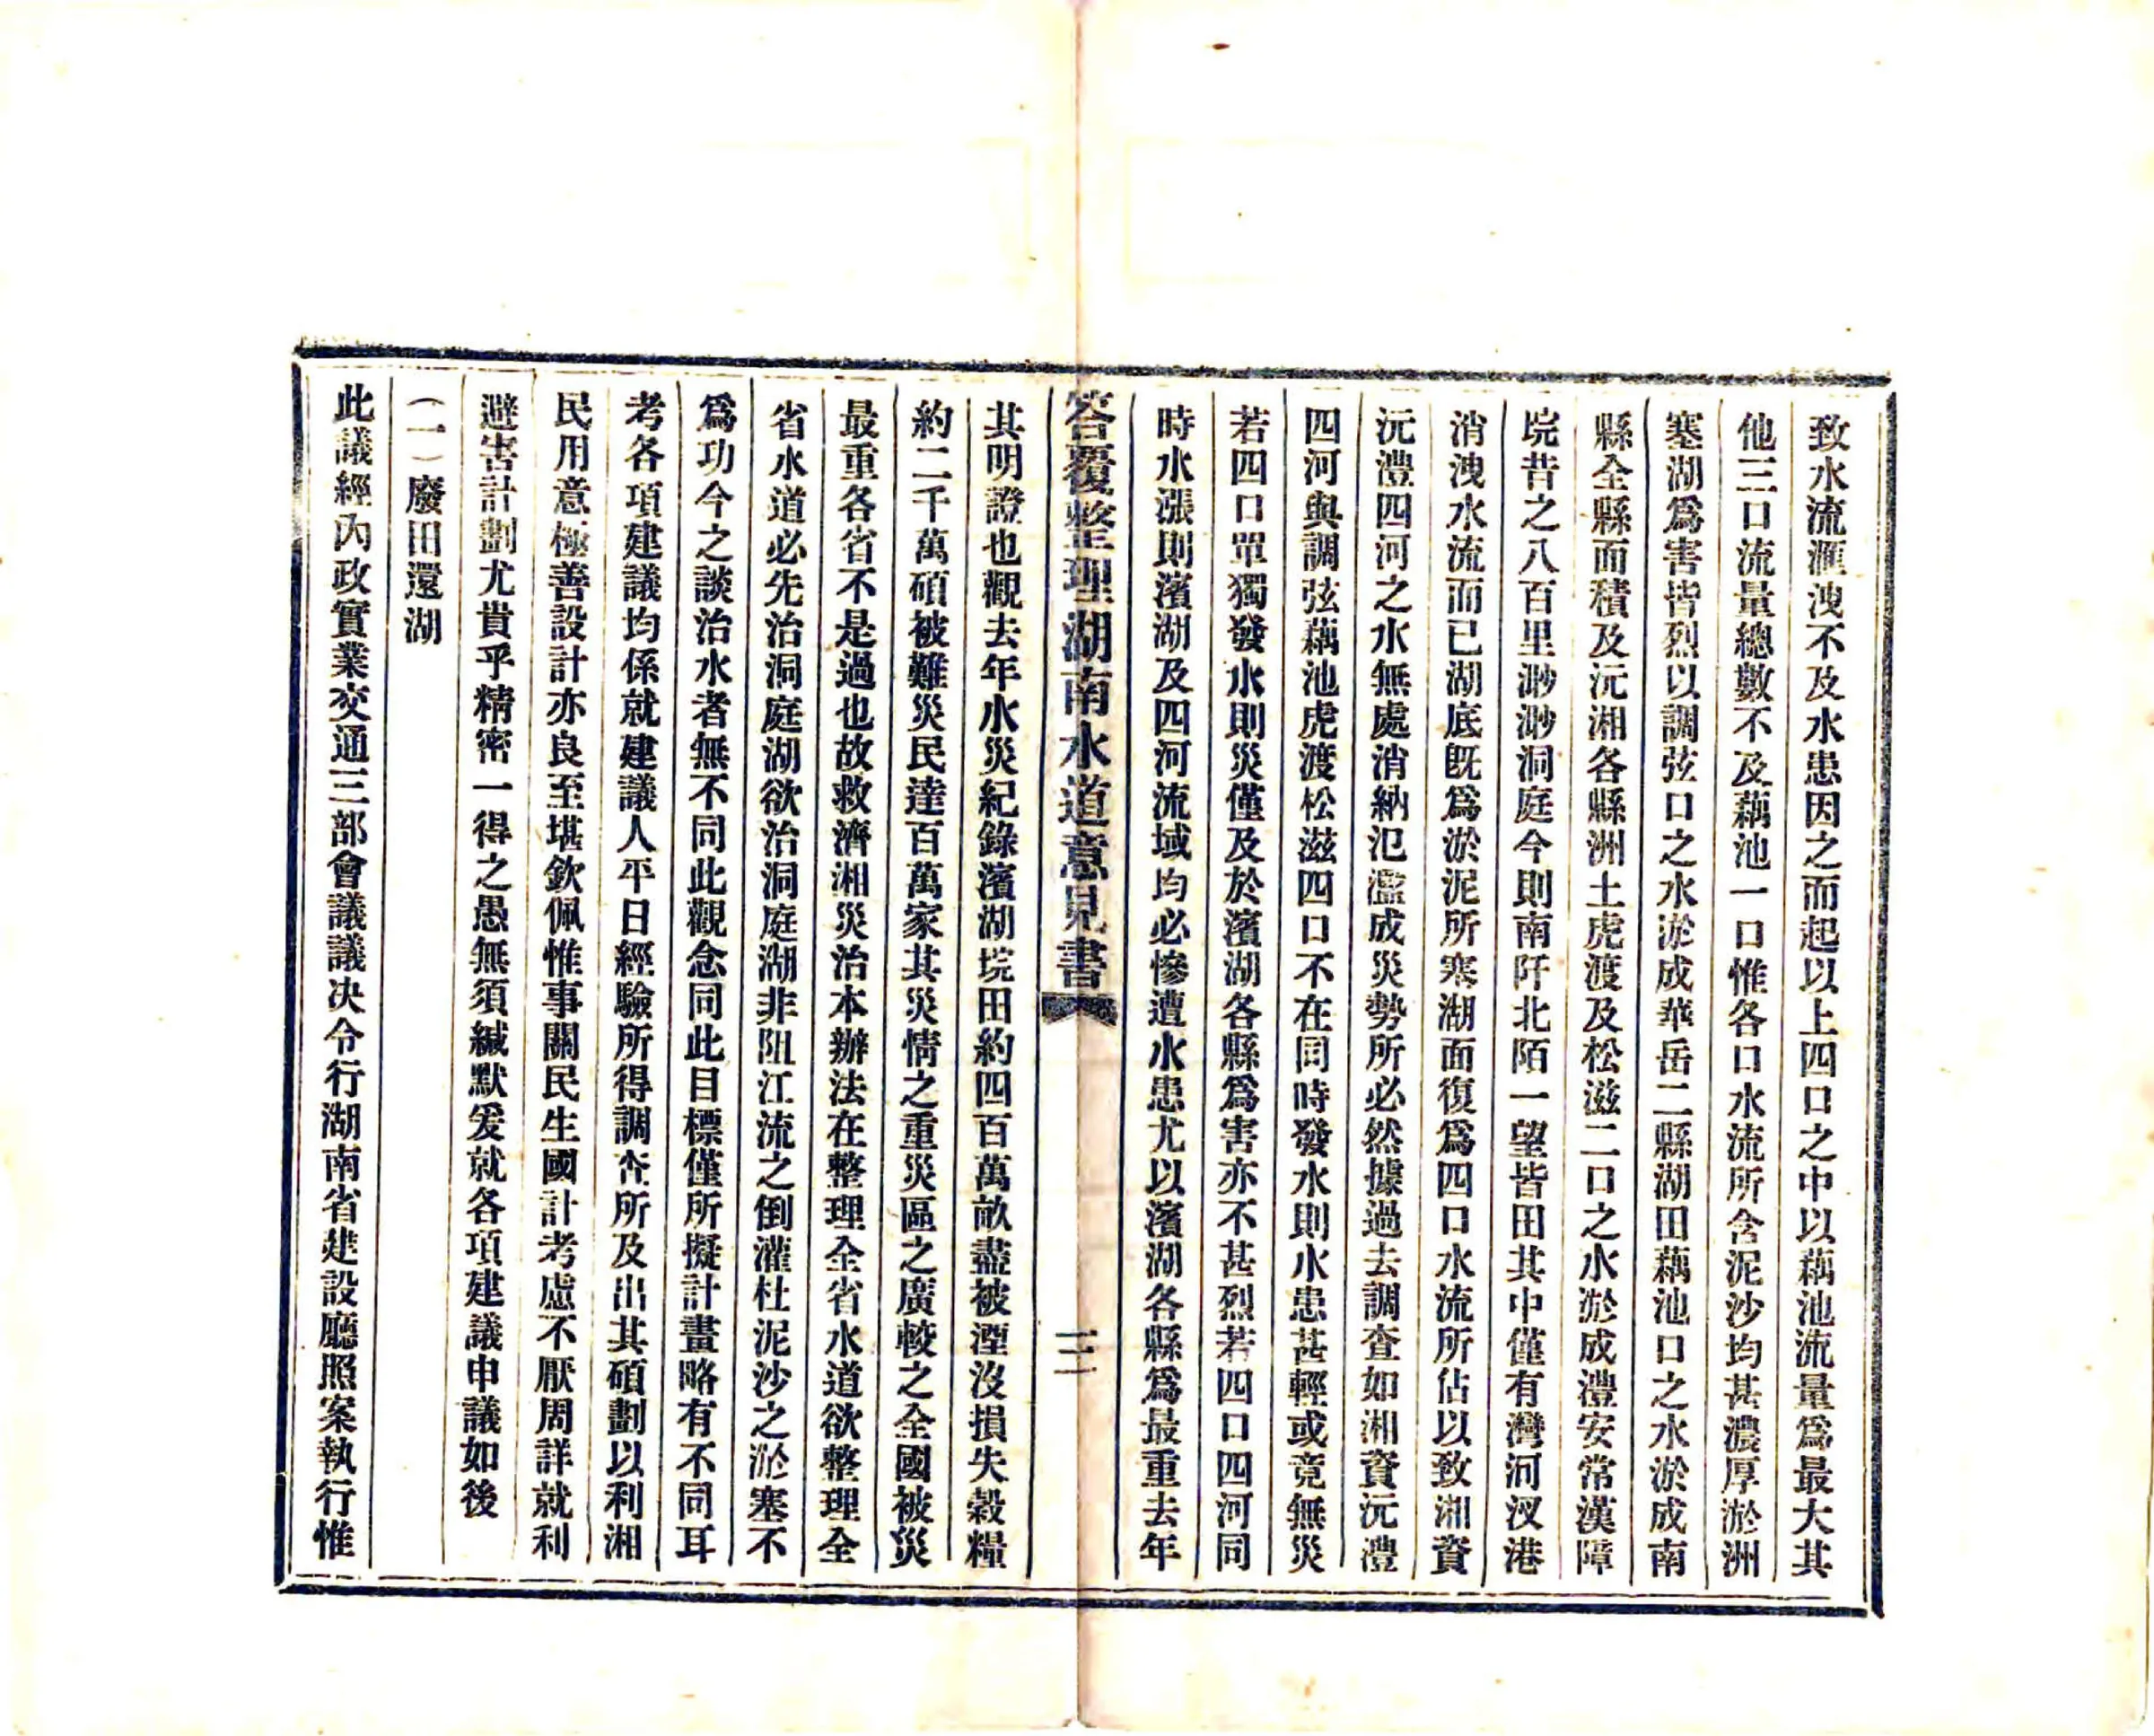 致水流滙洩不及水患因之而起以上四口之中以藕池流量爲最大其
他三口流量總數不及藕池一口惟各口水流所含泥沙均甚濃厚淤洲
塞湖爲害皆烈以調弦口之水淤成華岳二縣湖田藕池口之水淤成南
縣全縣面積及沅湘各縣洲土虎渡及松滋二口之水淤成澧安常漢障
垸昔之八百里渺渺洞庭今則南阡北陌一望皆田其中僅有灣河汊港
消洩水流而已湖底旣爲淤泥所塞湖面復爲四口水流所佔以致湘資
沅澧四河之水無處消納氾濫成災勢所必然據過去調查如湘資沅澧
四河與調弦藕池虎渡松滋四口不在同時發水則水患甚輕或竟無災
若四口單獨發水則災僅及於濱湖各縣爲害亦不甚烈若四口四河同
時水漲則濱湖及四河流域均必慘遭水患尤以濱湖各縣爲最重去年
答覆整理湖南水道意見書
其明證也觀去年水災紀錄濱湖垸田約四百萬畝盡被湮沒損失穀糧
約二千萬碩被難災民達百萬家其災情之重災區之廣較之全國被災
最重各省不是過也故救濟湘災治本辦法在整理全省水道欲整理全
省水道必先治洞庭湖欲治洞庭湖非阻江流之倒灌杜泥沙之淤塞不
爲功今之談治水者無不同此觀念同此目標僅所擬計畫略有不同耳
考各項建議均係就建議人平日經驗所得調查所及出其碩劃以利湘
民用意極善設計亦良至堪欽佩惟事關民生國計考慮不厭周詳就利
避害計劃尤貴乎精密一得之愚無須緘默爰就各項建議申議如後
(一)廢田還湖
此議經內政實業交通三部會議議決令行湖南省建設廳照案執行惟